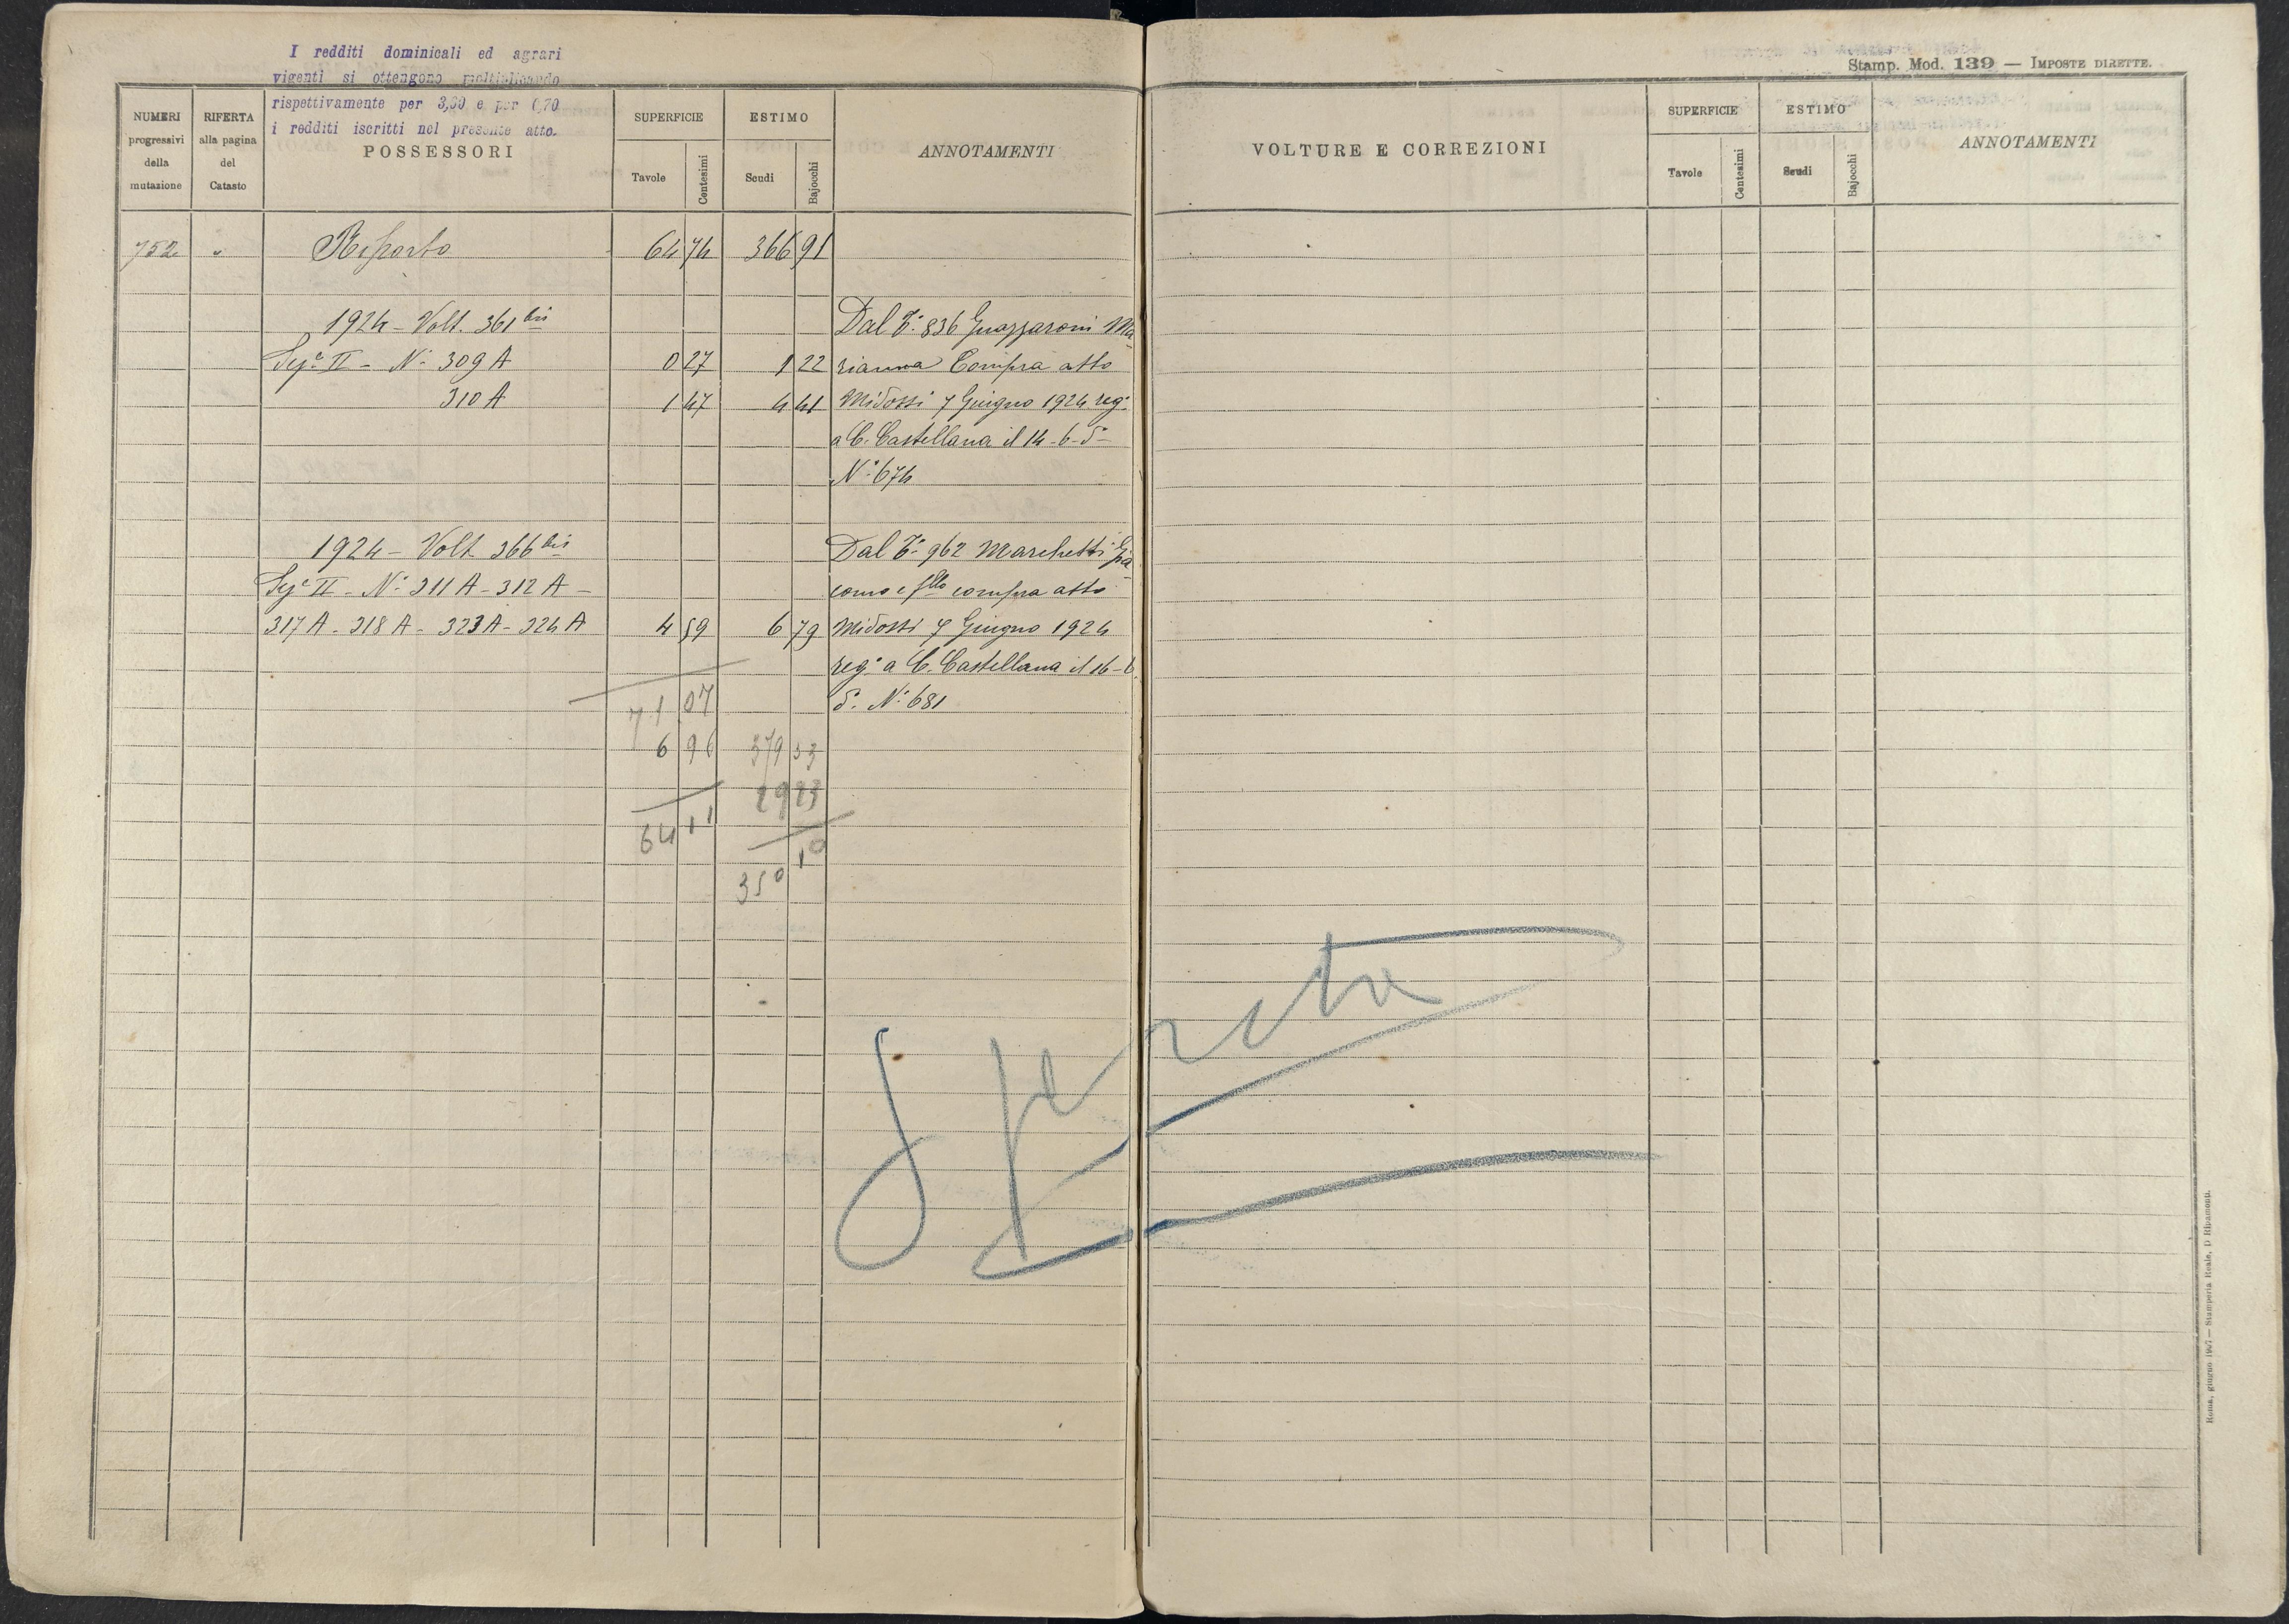 I redditi dominicali ed agrari
vigenti si ottengono moltiplicando
rispettivamente per 3,00 e per 0,70
i redditi iscritti nel presente atto.
NUMERI progressivi della mutazione
RIFERTA alla pagina del Catasto
POSSESSORI
SUPERFICIE
Tavole
Centesimi
ESTIMO
Scudi
Bajocchi
ANNOTAMENTI
752 " Riporto 64 74 366 91
1924 - Volt. 361 bis Dal T. 836 Guazzaroni Ma
Sez.e II - N. 309 A 0 27 1 22 rianna Compra atto
310 A 1 47 4 41 Midossi 7 Giugno 1924 reg.
a C. Castellana il 14-6-
N. 674
1924 - Volt 366 bis Dal T. 962 Marchetti Gia
Sez.e II - N. 311 A - 312 A - como e f.llo compra atto
317 A - 318 A - 323 A - 324 A 4 59 6 79 Midossi 7 Giugno 1924
reg. a C. Castellana il 16-6
N. 681
71 07
6 96 379 33
29 23
64 11
350 10
Stamp. Mod. 139 — IMPOSTE DIRETTE.
VOLTURE E CORREZIONI
SUPERFICIE
Tavole
Centesimi
ESTIMO
Scudi
Bajocchi
ANNOTAMENTI
Roma, giugno 1907 — Stamperia Reale, D Ripamonti.